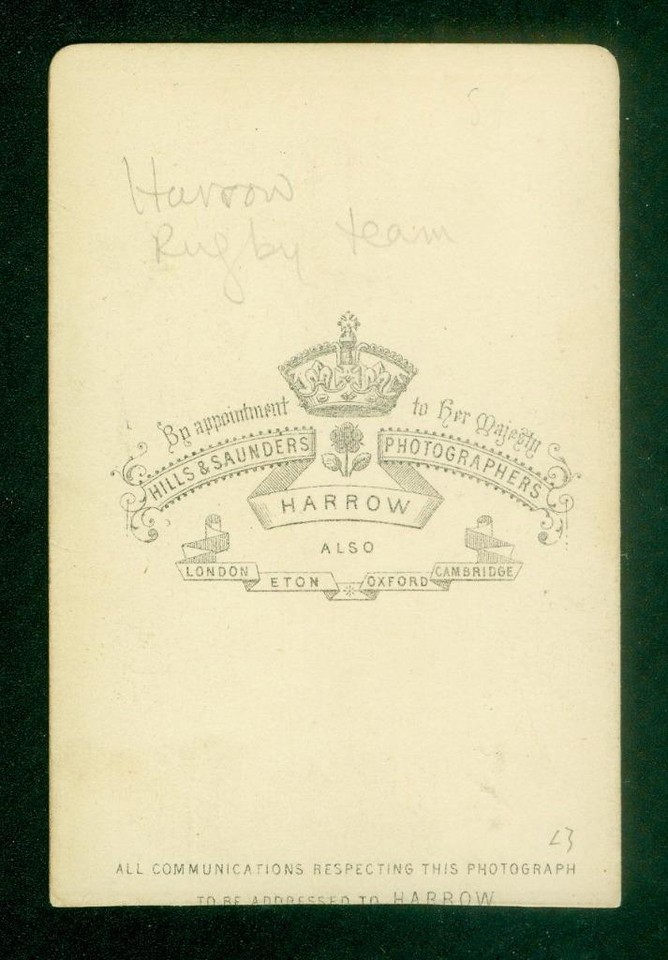 Harrow
Rugby team
By appointment to Her Majesty
HILLS & SAUNDERS PHOTOGRAPHERS
HARROW
ALSO
LONDON ETON OXFORD CAMBRIDGE
ALL COMMUNICATIONS RESPECTING THIS PHOTOGRAPH
TO BE ADDRESSED TO HARROW